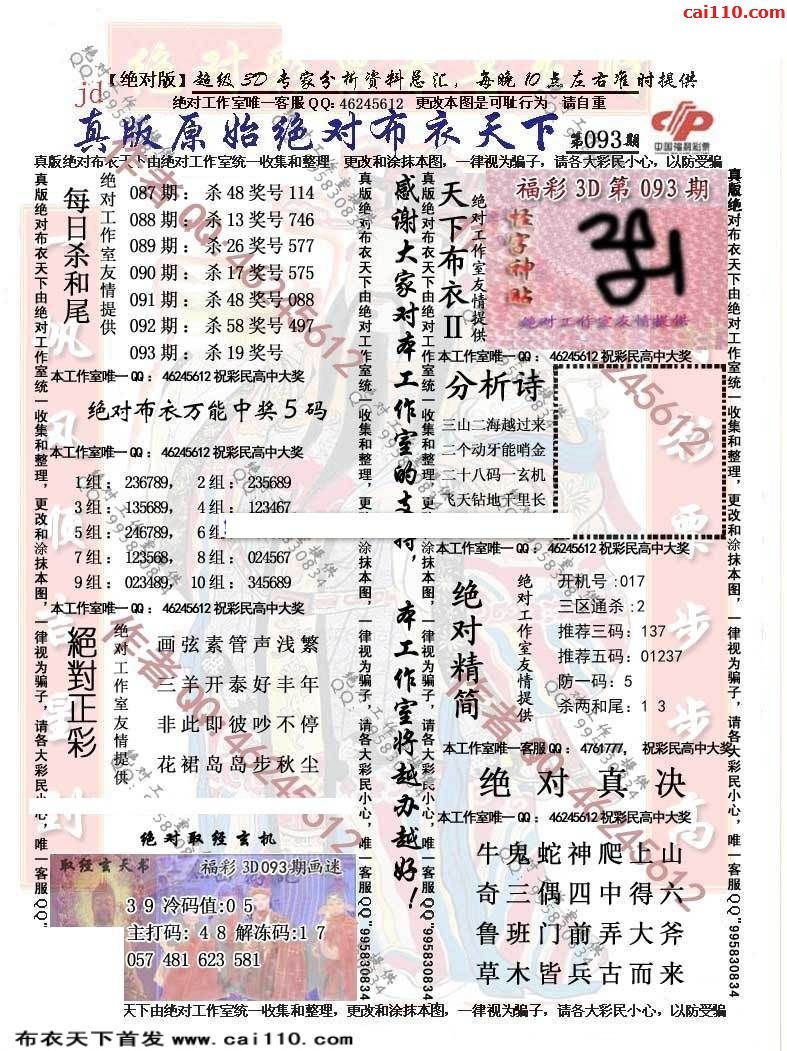 cai110.com
【绝对版】超级3D专家分析资料总汇，每晚10点左右准时提供
jd
绝对工作室唯一客服QQ：46245612 更改本图是可耻行为 请自重
真版原始绝对布衣天下 第093期
中国福利彩票
真版绝对布衣天下由绝对工作室统一收集和整理，更改和涂抹本图，一律视为骗子，请各大彩民小心，以防受骗
每日杀和尾
绝对工作室友情提供
087期：杀48奖号114
088期：杀13奖号746
089期：杀26奖号577
090期：杀17奖号575
091期：杀48奖号088
092期：杀58奖号497
093期：杀19奖号
本工作室唯一QQ：46245612祝彩民高中大奖
绝对布衣万能中奖5码
本工作室唯一QQ：46245612祝彩民高中大奖
1组：236789， 2组：235689
3组：135689， 4组：123467
5组：246789， 6组
7组：123568， 8组：024567
9组：023489， 10组：345689
本工作室唯一QQ：46245612祝彩民高中大奖
絕對正彩
绝对工作室友情提供
画弦素管声浅繁
三羊开泰好丰年
非此即彼吵不停
花裙岛岛步秋尘
绝对取经玄机
取经玄天书 福彩3D093期画迷
3 9 冷码值:0 5
主打码：4 8 解冻码:1 7
057 481 623 581
感谢大家对本工作室的支持，本工作室将越办越好！
天下布衣II
绝对工作室友情提供
福彩3D第093期
怪字神贴
绝对工作室友情提供
本工作室唯一QQ：46245612祝彩民高中大奖
分析诗
三山二海越过来
二个动牙能哨金
二十八码一玄机
飞天钻地千里长
本工作室唯一QQ：46245612祝彩民高中大奖
绝对精简
绝对工作室友情提供
开机号:017
三区通杀:2
推荐三码：137
推荐五码：01237
防一码：5
杀两和尾：1 3
本工作室唯一客服QQ：4761777，祝彩民高中大奖
绝对真决
本工作室唯一QQ：46245612祝彩民高中大奖
牛鬼蛇神爬上山
奇三偶四中得六
鲁班门前弄大斧
草木皆兵古而来
真版绝对布衣天下由绝对工作室统一收集和整理，更改和涂抹本图，一律视为骗子，请各大彩民小心，唯一客服QQ"995830834
天下由绝对工作室统一收集和整理，更改和涂抹本图，一律视为骗子，请各大彩民小心，以防受骗
布衣天下首发 www.cai110.com